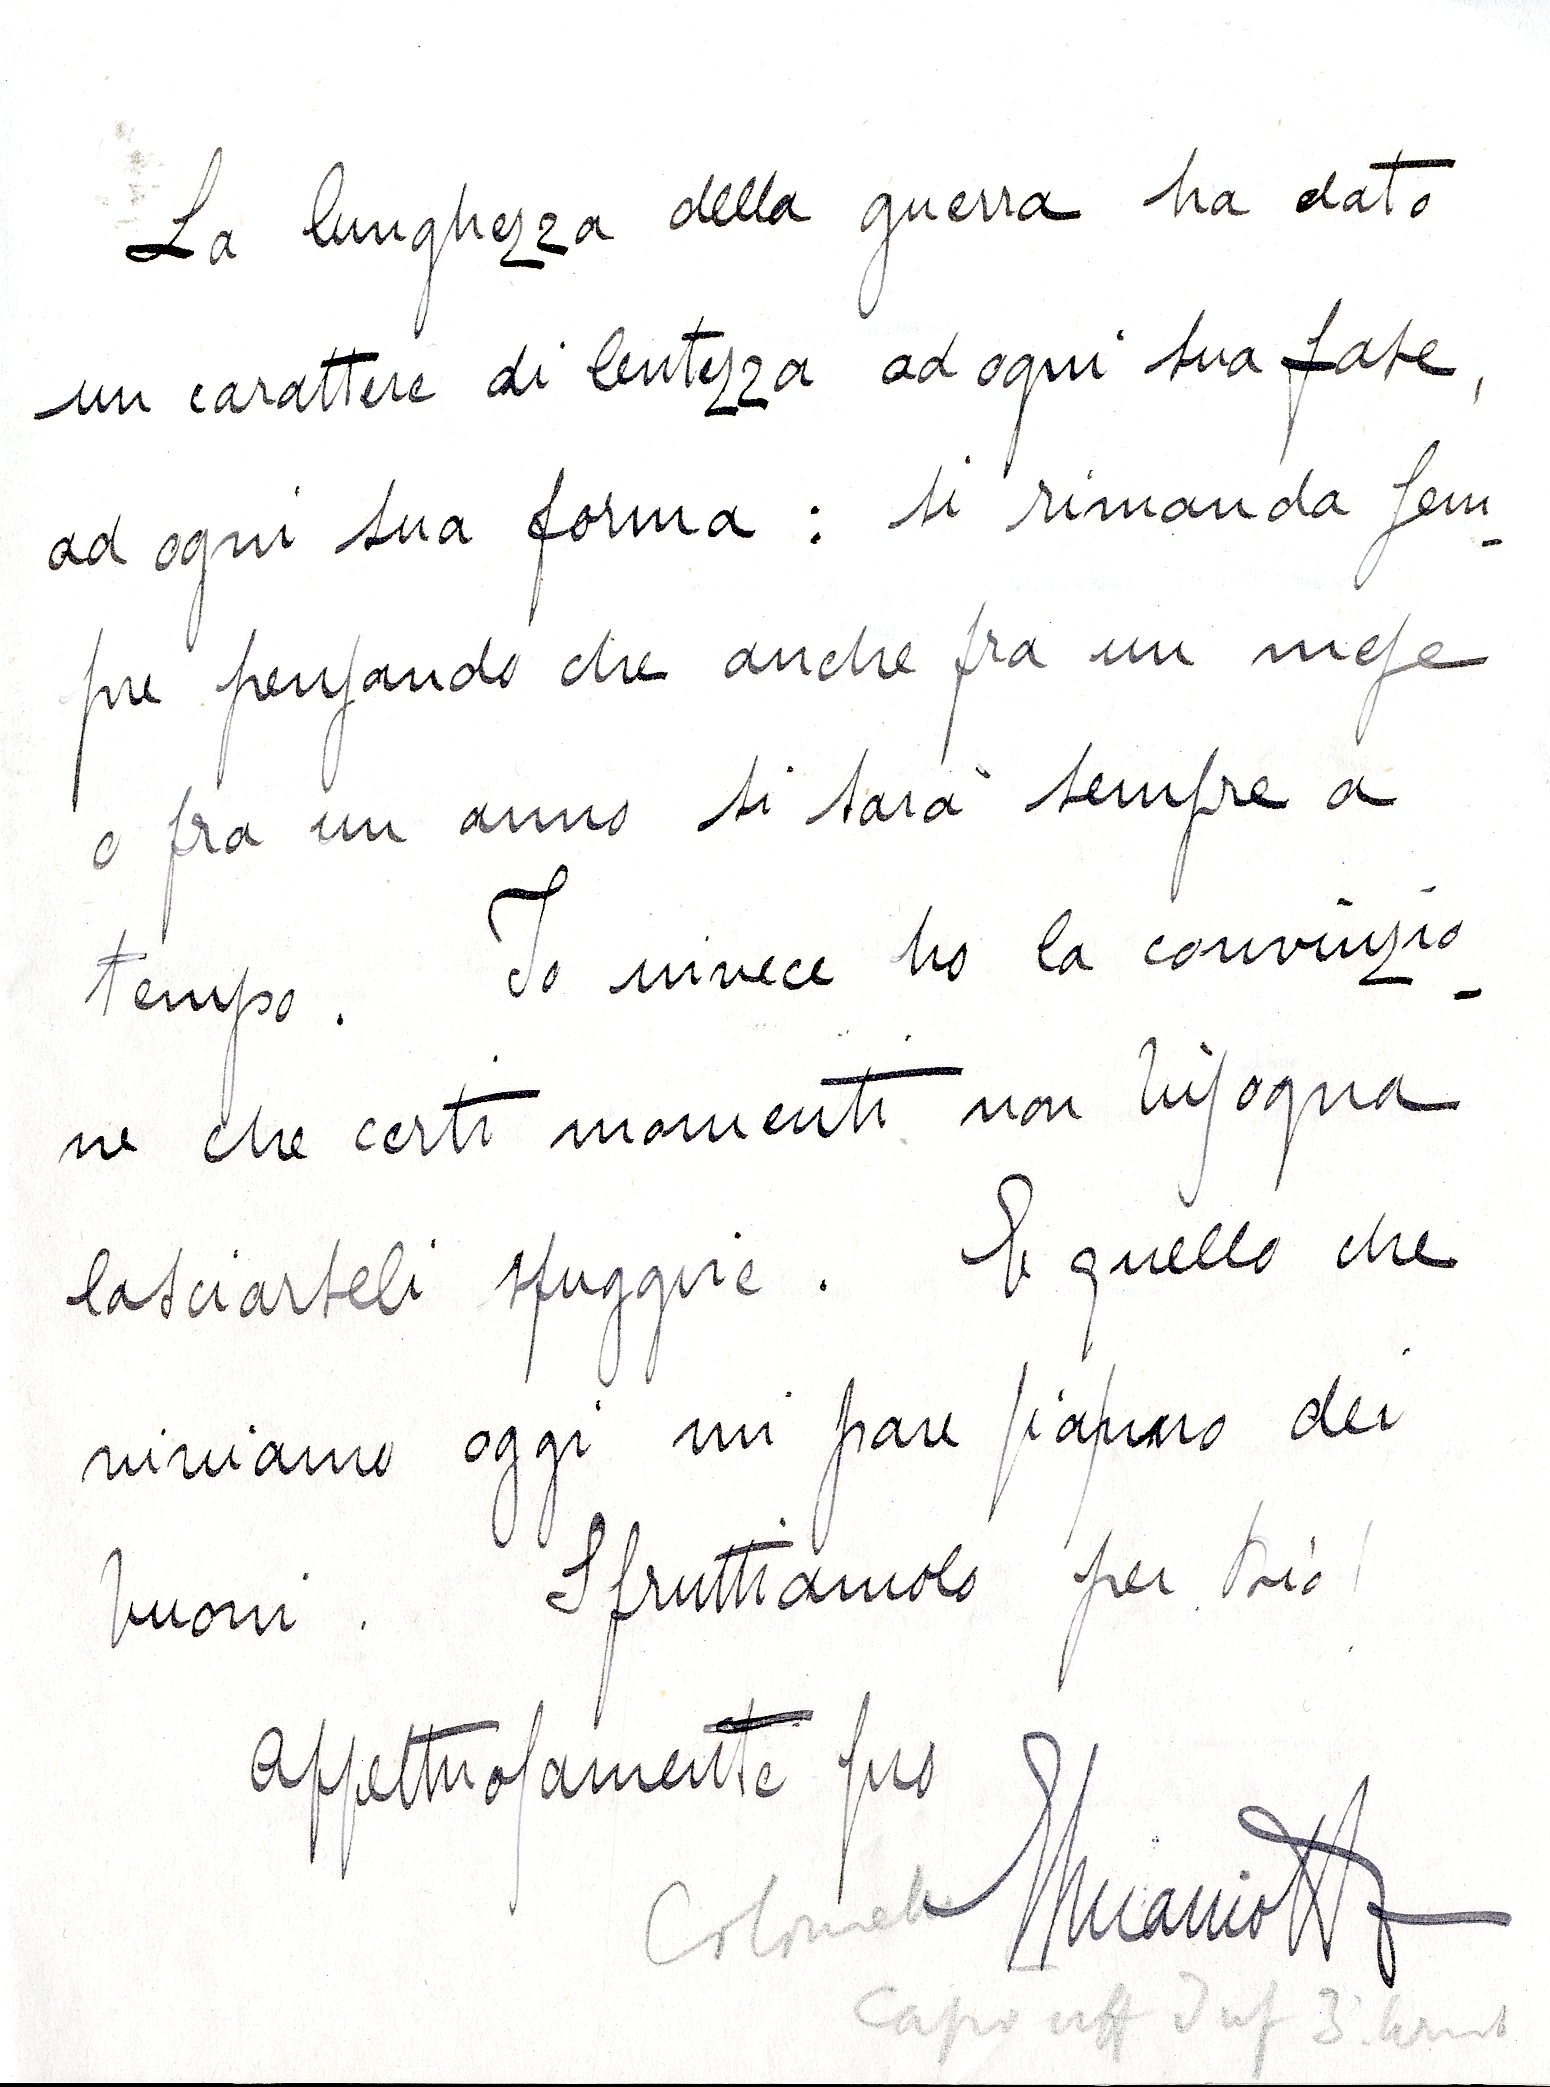 La lunghezza della guerra ha dato
un carattere di lentezza ad ogni sua fase,
ad ogni sua forma : si rimanda sem-
pre pensando che anche fra un mese
o fra un anno si sarà sempre a
tempo. Io invece ho la convinzio-
ne che certi momenti non bisogna
lasciarseli sfuggire. E quello che
viviamo oggi mi pare siapuro dei
buoni. Sfruttiamolo per Dio!
Affettuosamente suo
Colonnello
Capo uff Inf 3ª